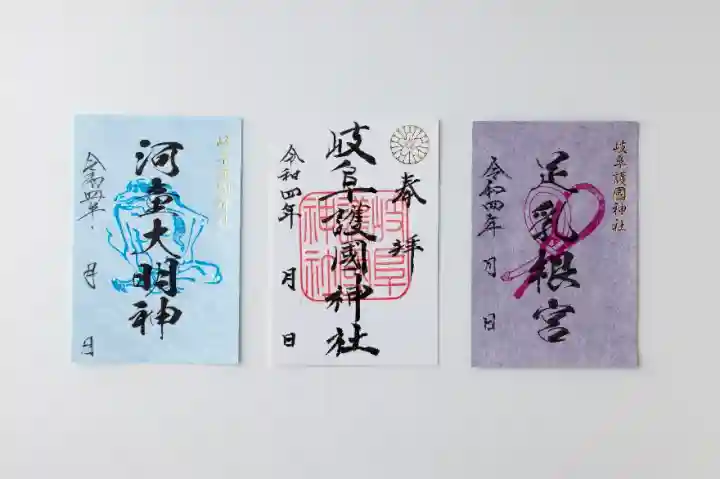 岐阜護國神社
河童大明神
令和四年
月
日
奉拝
岐阜護國神社
岐阜護國神社
令和四年
月
日
岐阜護國神社
足乳根宮
令和四年
月
日